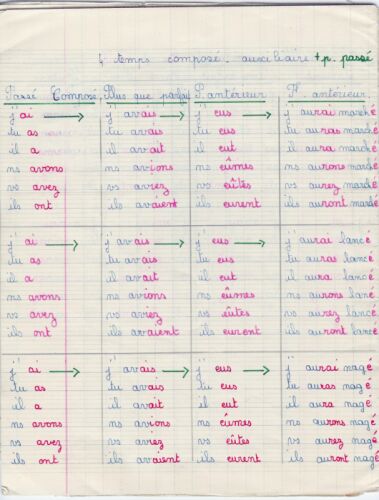 4 temps composé. auxiliaire + p. passé
Passé Composé Plus que parfait P. antérieur F. antérieur
j' ai j' avais j' eus j' aurai marché
tu as tu avais tu eus tu auras marché
il a il avait il eut il aura marché
ns avons ns avions ns eûmes ns aurons marché
vs avez vs aviez vs eûtes vs aurez marché
ils ont ils avaient ils eurent ils auront marché
j' ai j' avais j' eus j' aurai lancé
tu as tu avais tu eus tu auras lancé
il a il avait il eut il aura lancé
ns avons ns avions ns eûmes ns aurons lancé
vs avez vs aviez vs eûtes vs aurez lancé
ils ont ils avaient ils eurent ils auront lancé
j' ai j' avais j' eus j' aurai nagé
tu as tu avais tu eus tu auras nagé
il a il avait il eut il aura nagé
ns avons ns avions ns eûmes ns aurons nagé
vs avez vs aviez vs eûtes vs aurez nagé
ils ont ils avaient ils eurent ils auront nagé